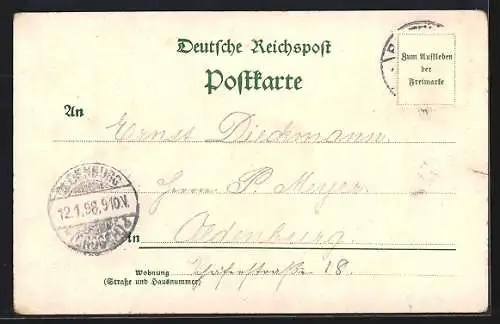 Deutsche Reichspost
Postkarte
Zum Aufkleben
der
Freimarke
An
Ernst Dieckmann.
Herrn P. Meyer.
OLDENBURG
12.1.98,9-10V.
in Oldenburg.
Wohnung
(Straße und Hausnummer)
Schäferstraße 18.